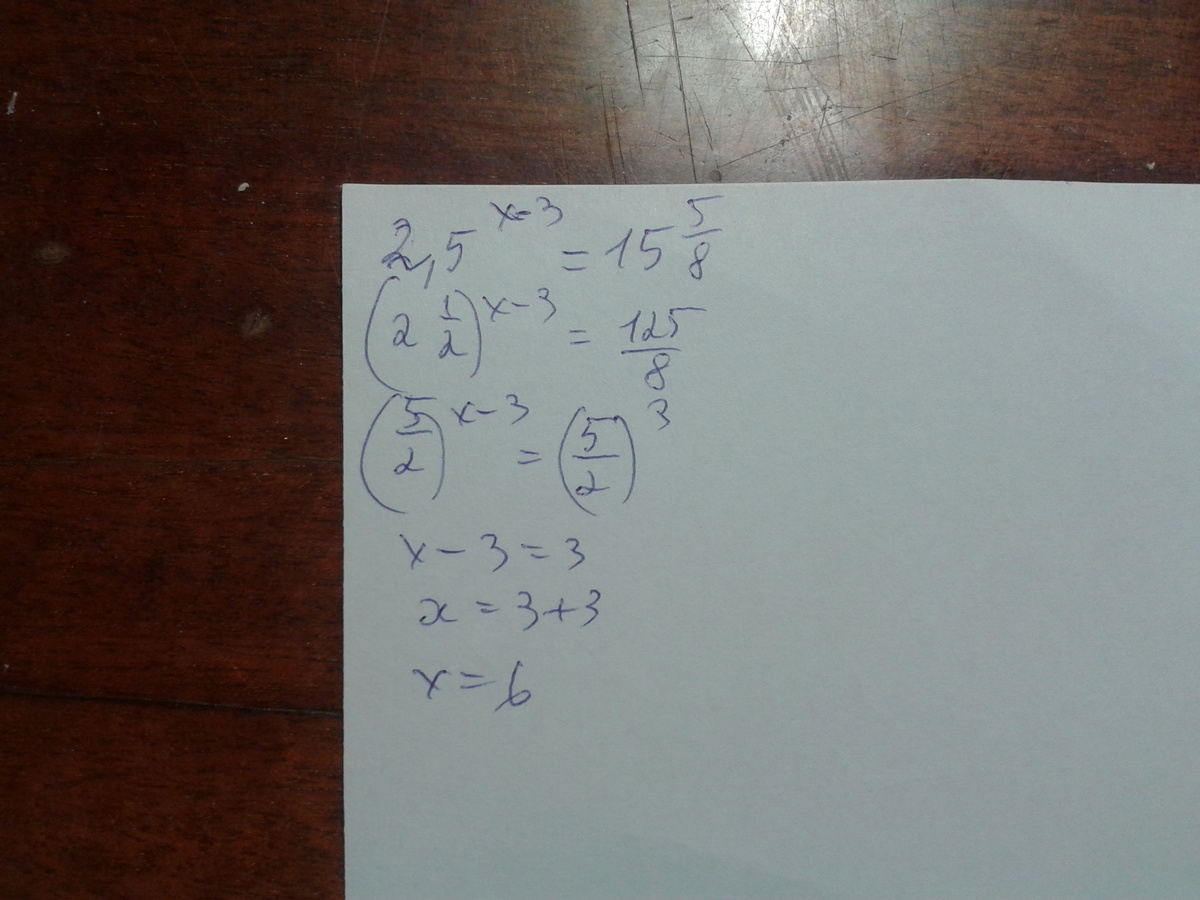 2,5^(x-3) = 15 5/8
(2 1/2)^(x-3) = 125/8
(5/2)^(x-3) = (5/2)^3
x - 3 = 3
x = 3+3
x = 6